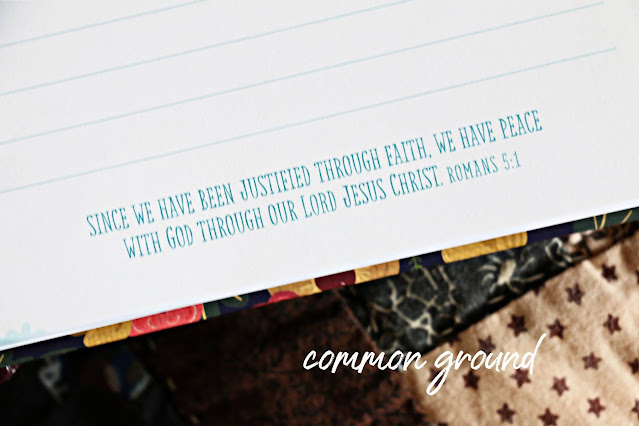 SINCE WE HAVE BEEN JUSTIFIED THROUGH FAITH, WE HAVE PEACE
WITH GOD THROUGH OUR LORD JESUS CHRIST. ROMANS 5:1
common ground